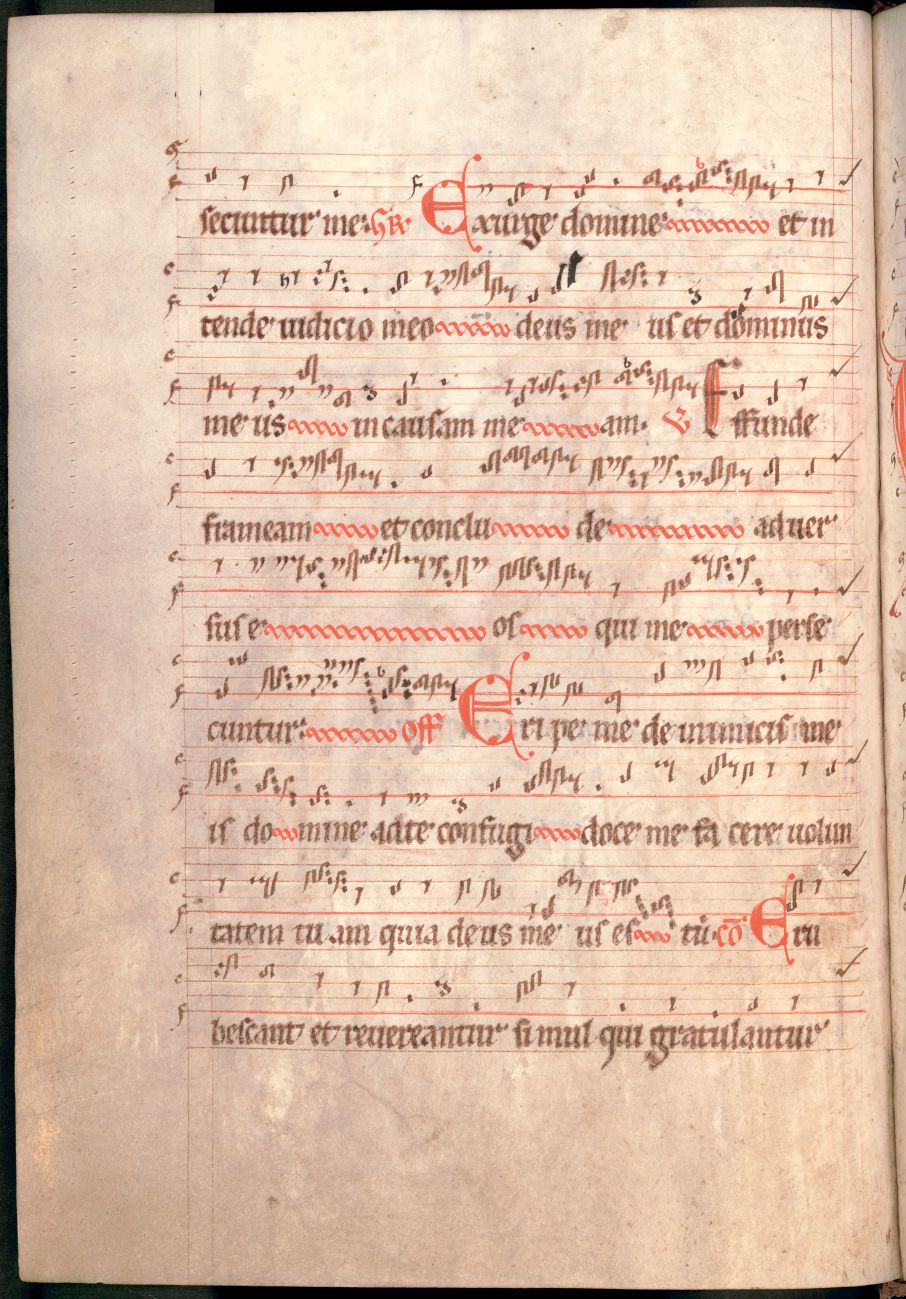 secuntur me. Gr̄ Exurge domine et in
tende iudicio meo deus me us et dominus
me us in causam me am. V Effunde
frameam et conclu de aduer
sus e os qui me perse
cuntur. Off Eripe me de inimicis me
is domine ad te confugi doce me fa cere uolun
tatem tu am quia deus me us es tu. cō Eru
bescant et reuereantur simul qui gratulantur